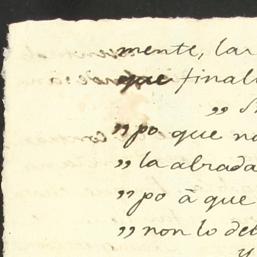 mente, lar
que final
„ S
„ po que n
„ la abrada
„ po â que
„ non lo de
y